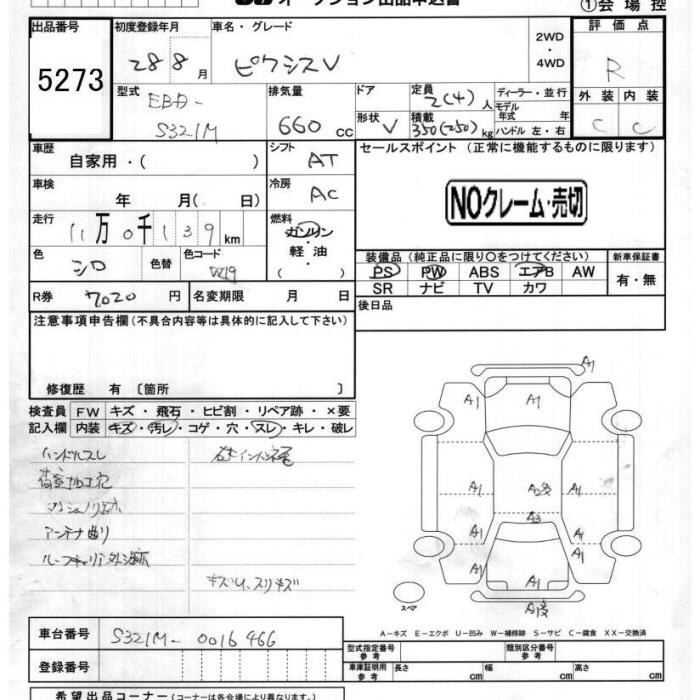 オークション出品申込書
①会場控
出品番号 初度登録年月 車名・グレード 評価点
5273 28 8月 ピクシスV 2WD・4WD R
型式 排気量 ドア 定員 2(4)人 ディーラー・並行 外装 内装
EBD- モデル年式 年
S321M 660cc 形状 V 積載 350(250)kg ハンドル 左・右 C C
車歴 自家用・( ) シフト AT セールスポイント (正常に機能するものに限ります)
車検 年 月( 日) 冷房 AC NOクレーム・売切
走行 11万0千139km 燃料 ガソリン・軽油・( )
色 シロ 色替 色コード W19 装備品(純正品に限り○をつけてください) 新車保証書
PS PW ABS エアB AW 有・無
SR ナビ TV カワ
R券 7020円 名変期限 月 日 後日品
注意事項申告欄(不具合内容等は具体的に記入して下さい)
修復歴 有 〔箇所 〕
検査員 FW キズ・飛石・ヒビ割・リペア跡・×要
記入欄 内装 キズ・汚レ・コゲ・穴・スレ・キレ・破レ
ハンドルスレ
アンテナ曲り
キズU、スリキズ
A1
A1 A1 A1
A1 A1
A3
A1 A1
A1 A1 A1
スペア
A−キズ E−エクボ U−凹み W−補修跡 S−サビ C−腐食 XX−交換済
車台番号 S321M-0016466
型式指定番号 参考 類別区分番号 参考
登録番号 車庫証明用 参考 長さ cm 幅 cm 高さ cm
希望出品コーナー(コーナーは各会場により異なります。)